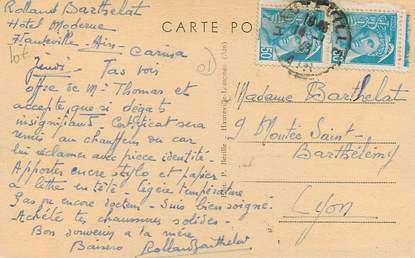 Rolland Barthelat
Hotel Moderne
Hauteville - Ain
CARTE PO
Carma
Jeudi - Pas vu
offre de Mr Thomas et
accepte que si dégats
insignifiant. Certificat sera
remis au chauffeur du car
lui réclamer avec pièce identité.
Apportes encre stylo et papier
à lettre en tête - légère température
Pas vu encore docteur - Suis bien soigné.
Achète tes chaussures solides -
Bon souvenir à ta mère
Baisers Rolland Barthelat
Madame Barthelat
9 Montée Saint-
Barthélémy
Lyon
50